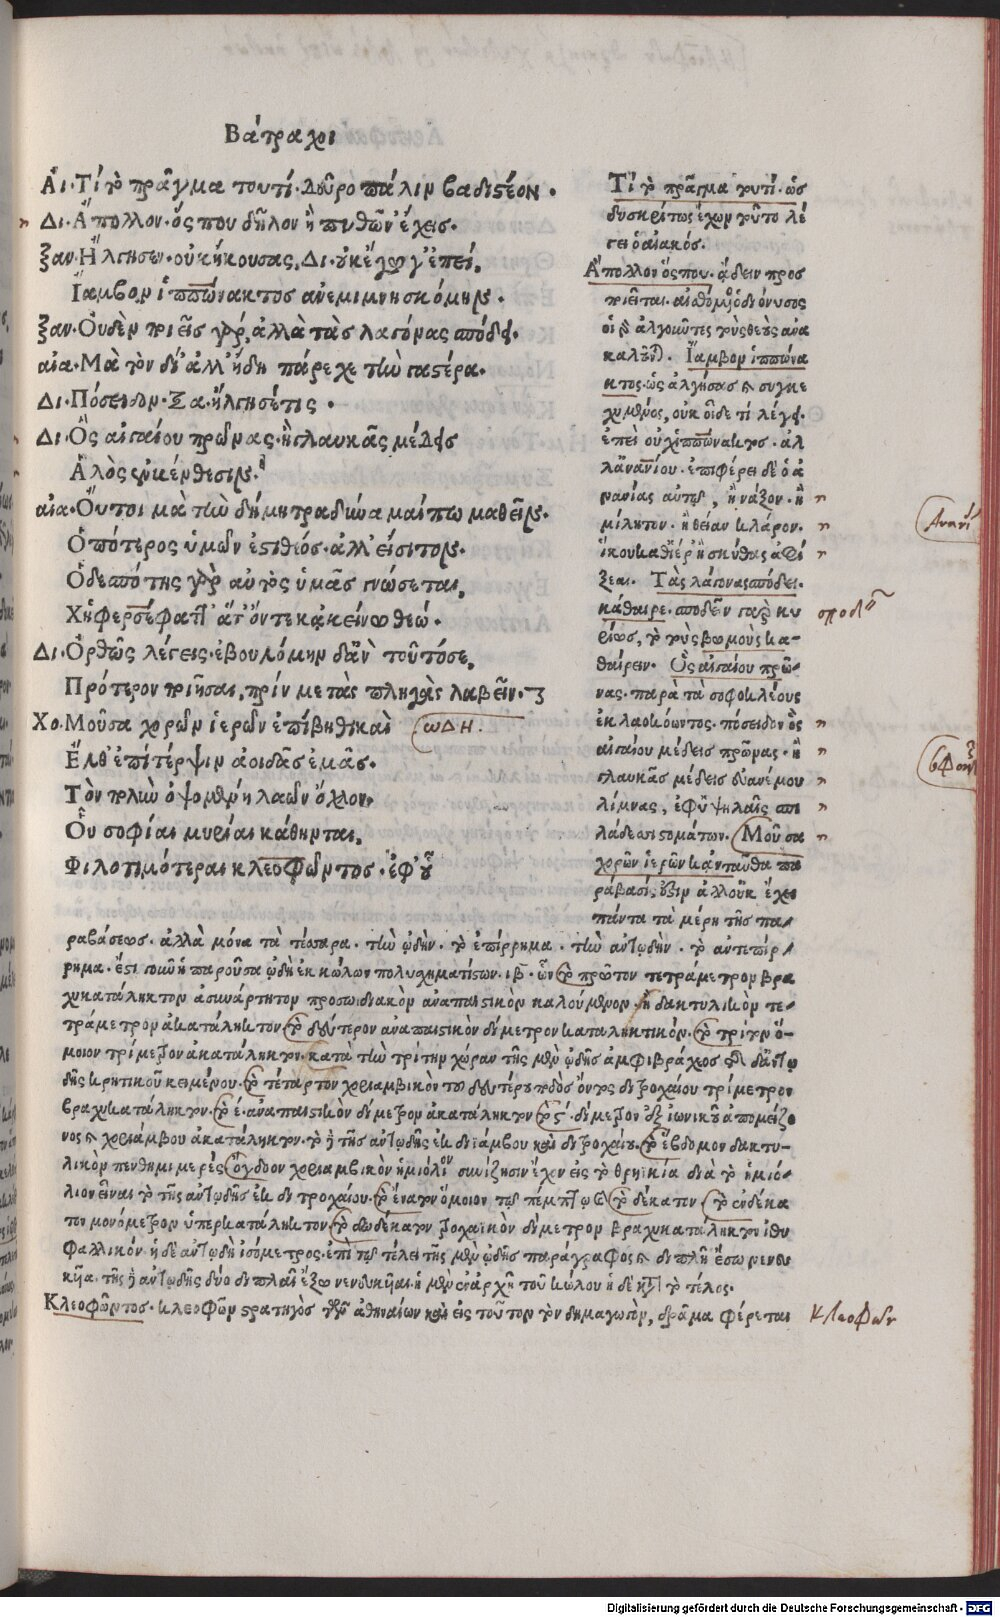 Βάτραχοι
Αἰ. Τί τὸ πρᾶγμα τουτί. δεῦρο πάλιν βαδιστέον.
Δι. Ἄπολλον. ὅς που δῆλον ἢ πυθῶν᾽ ἔχεις.
Ξαν. Ἤλγησεν. οὐκ ἤκουσας, Δι. οὐκ ἔγωγ᾽ ἐπεί,
Ἴαμβον ἱππώνακτος ἀνεμιμνησκόμην.
Ξαν. Οὐδὲν ποιεῖς γὰρ, ἀλλὰ τὰς λαγόνας σπόδει.
αἰα. Μὰ τὸν δί᾽ ἀλλ᾽ ἤδη πάρεχε τὴν γαστέρα.
Δι. Πόσειδον. Ξα. ἤλγησέ τις.
Δι. Ὃς αἰγαίου πρῶνας. ἢ γλαυκᾶς μέδεις
Ἁλὸς ἐν βένθεσιν.
αἰα. Οὔτοι μὰ τὴν δήμητρα δύναμαί πω μαθεῖν.
Ὁπότερος ὑμῶν ἐστι θεός. ἀλλ᾽ εἴσιτον.
Ὁ δεσπότης γὰρ αὐτὸς ὑμᾶς γνώσεται,
Χἠ φερσέφατ᾽ ἅτ᾽ ὄντε κἀκείνω θεώ.
Δι. Ὀρθῶς λέγεις. ἐβουλόμην δ᾽ ἂν τοῦτό σε,
Πρότερον ποιῆσαι, πρίν με τὰς πληγὰς λαβεῖν.
Χο. Μοῦσα χορῶν ἱερῶν ἐπίβηθι καὶ ωδη.
Ἔλθ᾽ ἐπὶ τέρψιν ἀοιδᾶς ἐμᾶς.
Τὸν πολὺν ὀψομένη λαῶν ὄχλον,
Οὗ σοφίαι μυρίαι κάθηνται,
Φιλοτιμότεραι κλεοφῶντος. ἐφ᾽ οὗ
Τί τὸ πρᾶγμα τουτί. ὡς
δυσκρίτως ἔχων τοῦτο λέ
γει ὁ αἰακός.
Ἄπολλον ὅς που. ᾄδειν προσ
ποιεῖται. αἰσθόμενος ὁ διόνυσος
οἱ γὰρ ἀλγοῦντες τοὺς θεοὺς ἀνα
καλοῦσι. Ἴαμβον ἱππώνα
κτος. ὡς ἀλγήσας καὶ συγκε
χυμένος, οὐκ οἶδε τί λέγει.
ἐπεὶ οὐχ ἱππώνακτος. ἀλ
λ᾽ ἀνανίου. ἐπιφέρει δὲ ὁ ἀ
νανίας αὐτῷ, ἢ νάξον. ἢ
μίλητον. ἢ θείαν κλάρον. Ανανί
ἵκου καθ᾽ ἱέρ᾽ ἢ σκύθας ἀφί
ξεαι. Τὰς λαγόνας σπόδει.
κάθαιρε. σποδεῖν γὰρ κυ σποδεῖν
ρίως, τὸ τοὺς βωμοὺς κα-
θαίρειν. Ὃς αἰγαίου πρῶ-
νας. παρὰ τὰ σοφοκλέους
ἐκ λαοκόωντος. πόσειδον ὃς
αἰγαίου μέδεις πρῶνας. ἢ
γλαυκᾶς μέδεις εὐανέμου
λίμνας, ἐφ᾽ ὑψηλαῖς σπι
λάδεσσι στομάτων. Μοῦσα
χορῶν ἱερῶν κἀνταῦθα πα
ράβασίς ἐστιν ἀλλ᾽ οὐκ ἔχει
πάντα τὰ μέρη τῆς πα-
ραβάσεως. ἀλλὰ μόνα τὰ τέσσαρα. τὴν ᾠδὴν. τὸ ἐπίρρημα. τὴν ἀντῳδὴν. τὸ ἀντεπίρ-
ρημα. ἔστι γοῦν ἡ παροῦσα ᾠδὴ ἐκ κώλων πολυσχηματίστων. ιβ. ὧν τὸ πρῶτον τετράμετρον βρα
χυκατάληκτον ἀσυνάρτητον προσωδιακὸν ἀναπαιστικὸν καλούμενον. ἢ δακτυλικὸν τε-
τράμετρον ἀκατάληκτον τὸ δεύτερον ἀναπαιστικὸν δίμετρον καταληκτικόν. τὸ τρίτον ὅ-
μοιον τρίμετρον ἀκατάληκτον. κατὰ τὴν τρίτην χώραν τῆς μὲν ᾠδῆς ἀμφίβραχος τῆς δ᾽ ἀντῳ
δῆς κρητικοῦ κειμένου. τὸ τέταρτον χοριαμβικὸν τοῦ δευτέρου ποδὸς ὄντος διτροχαίου τρίμετρον
βραχυκατάληκτον. τὸ ε. ἀναπαιστικὸν δίμετρον ἀκατάληκτον τὸ ς. δίμετρον ἐξ ἰωνικοῦ ἀπὸ μείζο
νος καὶ χοριάμβου ἀκατάληκτον. τὸ δὲ τῆς ἀντῳδῆς ἐκ διιάμβου καὶ διτροχαίου. τὸ ἕβδομον δακτυ-
λικὸν πενθημιμερές ὄγδοον χοριαμβικὸν ἡμιόλιον συνίζησιν ἔχον εἰς τὸ θρηικία διὰ τὸ ἡμιό-
λιον εἶναι τὸ τῆς ἀντῳδῆς ἐκ διτροχαίου. τὸ ἔνατον ὅμοιον τῷ πέμπτῳ τὸ δέκατον τὸ ἑνδέκα
τον μονόμετρον ὑπερκατάληκτον. τὸ δωδέκατον τροχαϊκὸν δίμετρον βραχυκατάληκτον ἰθυ
φαλλικόν. ἡ δὲ ἀντῳδὴ ἰσόμετρος. ἐπὶ τῷ τέλει τῆς μὲν ᾠδῆς παράγραφος καὶ διπλῆ ἔσω νενευ
κυῖα. τῆς δὲ ἀντῳδῆς δύο διπλαῖ ἔξω νενευκυῖαι. ἡ μὲν ἐν ἀρχῇ τοῦ κώλου ἡ δὲ κατὰ τὸ τέλος.
Κλεοφῶντος. κλεοφῶν στρατηγὸς τῶν ἀθηναίων καὶ εἰς τοῦτον τὸν δημαγωγὸν, δρᾶμα φέρεται Κλεοφῶν
Digitalisierung gefördert durch die Deutsche Forschungsgemeinschaft - DFG